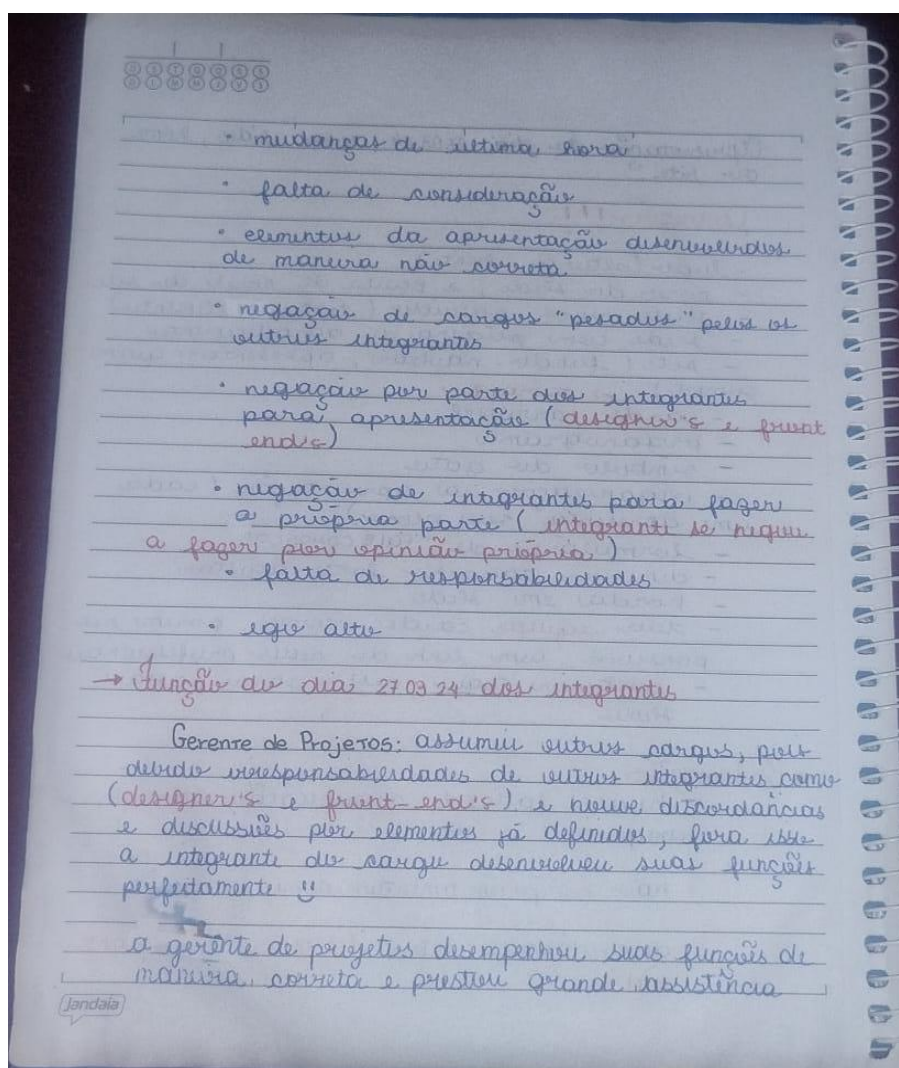 D S T Q Q S S
D L M M J V S
• mudanças de última hora
• falta de consideração
• elementos da apresentação desenvolvidos
de maneira não correta
• negação de cargos "pesados" pelos os
outros integrantes
• negação por parte dos integrantes
para apresentação (designer's e front
end's)
• negação de integrantes para fazer
a própria parte (integrante se negou
a fazer por opinião própria)
• falta de responsabilidades
• ego alto
→ Função do dia 27 09 24 dos integrantes
Gerente de Projetos: assumiu outros cargos, pois
devido irresponsabilidades de outros integrantes como
(designer's e front-end's) e houve discordâncias
e discussões por elementos já definidos, fora isso
a integrante do cargo desenvolveu suas funções
perfeitamente :)
a gerente de projetos desempenhou suas funções de
maneira correta e prestou grande assistência
Jandaia